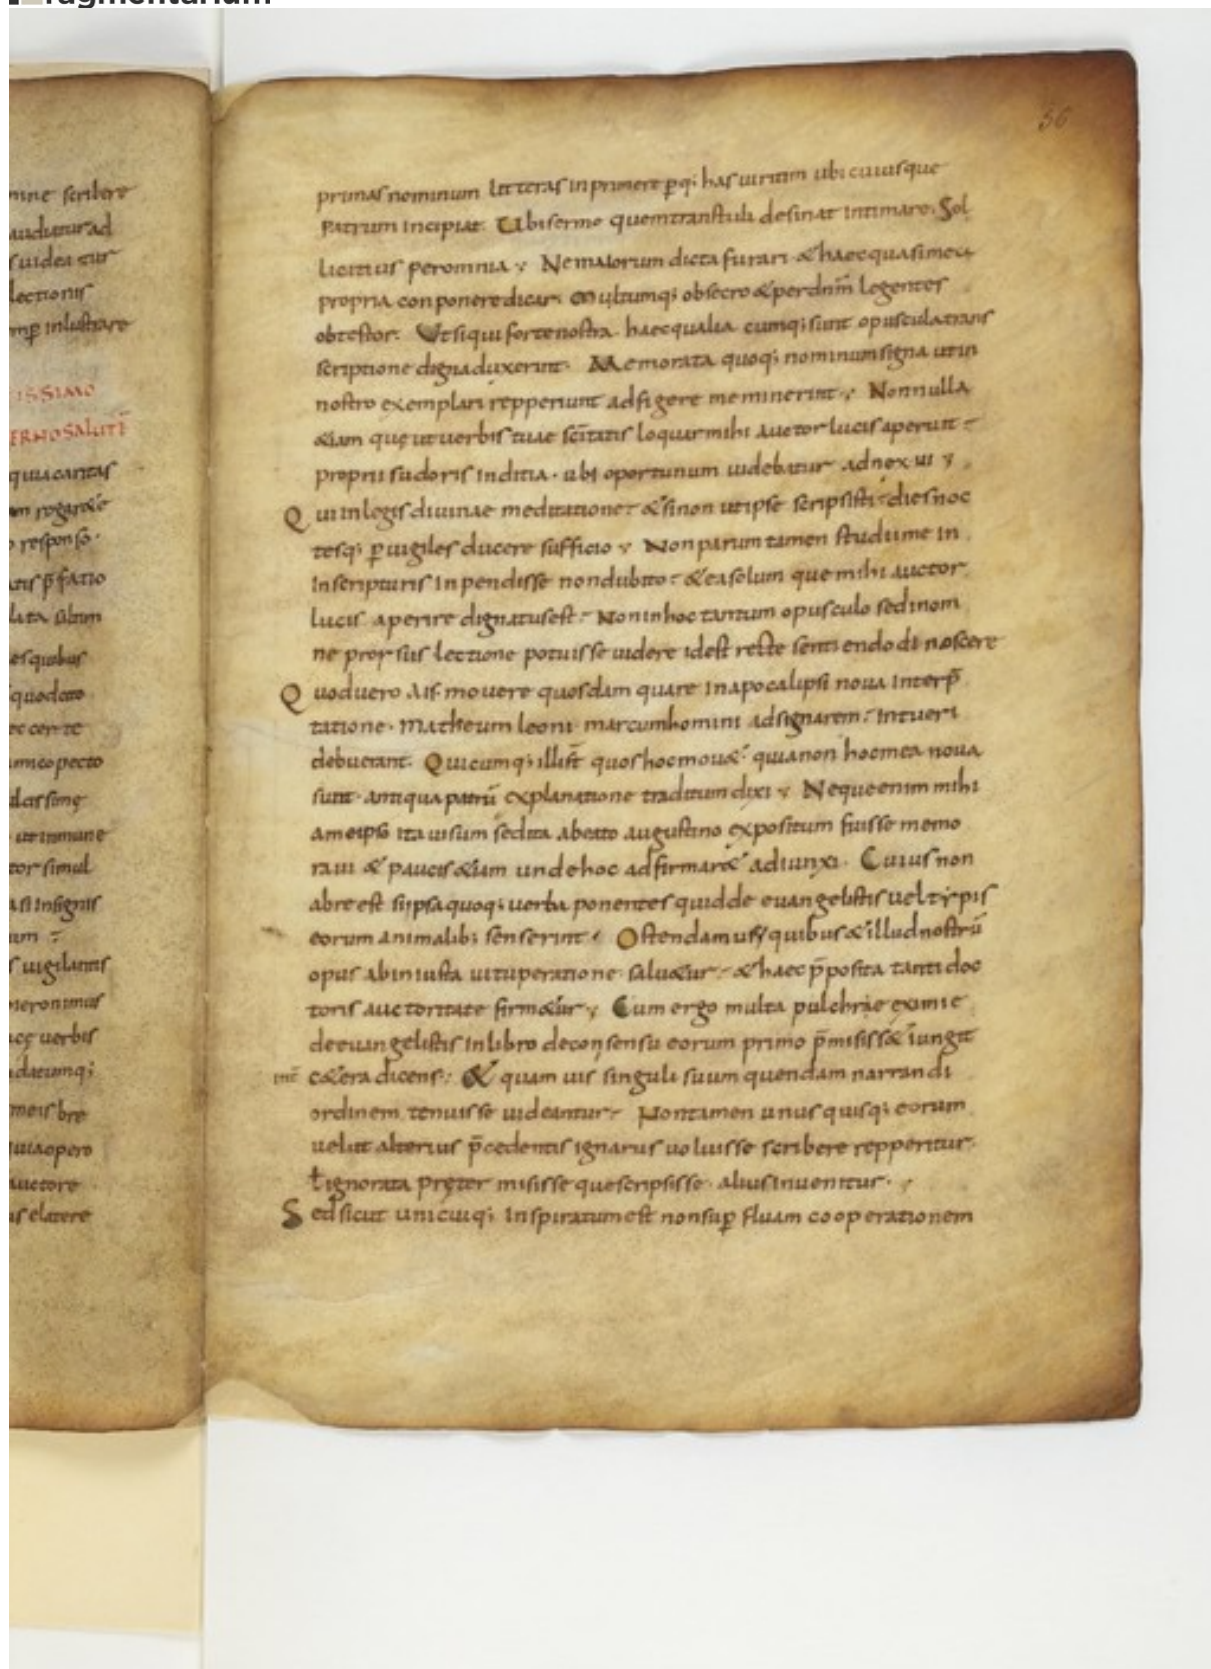 ragmentarium
36
nine scribere
auditur ad
s uidea tur
lectionis
inlustrare
ISSIMO
ERNO SALUTĒ
quia caritas
respon so.
p̄fatio
es quibus
quodcto
pecto
ut inmune
tor simul
insignis
um
s uigilantis
ieronimus
uerbis
datumq;
meis bre
opero
auctore
is elatere
primas nominum litteras inprimere ꝑq; has uiritim ubi cuiusque
Patrum incipiat. Ubi sermo quem transtuli desinat intimare. Sol
licitius peromnia Ne maiorum dicta furari & haec quasi mea
propria con ponere dicar. Multumq; obsecro & perdn̄m legentes
obtestor. Ut siqui forte nostra haec qualia cumq; sunt opuscula trans
scriptione digna duxerint. Memorata quoq; nominum signa ut in
nostro exemplari repperiunt adfigere meminerint. Nonnulla
&iam quę ut uerbis tuae sc̄itatis loquar mihi auctor lucis aperuit
propri sudoris inditia. ubi oportunum uidebatur adnexui
Qui in legis diuinae meditatione & si non ut ipse scripsisti dies noc
tesq; ꝑuigiles ducere sufficio Non parum tamen studii me in
In scripturis inpendisse non dubito & ea solum que mihi auctor
lucis aperire dignatus est. Non in hoc tantum opusculo sed in om
ne prorsus lectione potuisse uidere id est recte sentiendo dinoscere
Quod uero ais mouere quosdam quare in apocalipsi noua interp̄
tatione. Matheum leoni marcum homini adsignarem. intueri
debuerant. Quicumq; illi st̄ quos hoc mou& quia non hoc mea noua
sunt. antiqua patrū explanatione traditum dixi Neque enim mihi
ameipso ita uisum sed ita abeato augustino expositum fuisse memo
raui & paucis &iam unde hoc adfirmar& adiunxi. Cuius non
abre est si ipsa quoq; uerba ponentes quid de euangelistis uel typis
eorum animalib; senserint Ostendamus quibus & illud nostrū
opus abiniusta uituperatione salu&ur & haec p̄posita tanti doc
toris auctoritate firm&ur Cum ergo multa pulchrae eximie
de euangelistis in libro deconsensu eorum primo p̄misiss& iungit
c&era dicens: & quam uis singuli suum quendam narrandi
ordinem tenuisse uideantur. Non tamen unus quisq; eorum
uelut alterius p̄cedentis ignarus uoluisse scribere repperitur.
ł ignorata prętermisisse que scripsisse alius inuenitur.
Sed sicut unicuiq; inspiratum est non suꝑfluam cooperationem